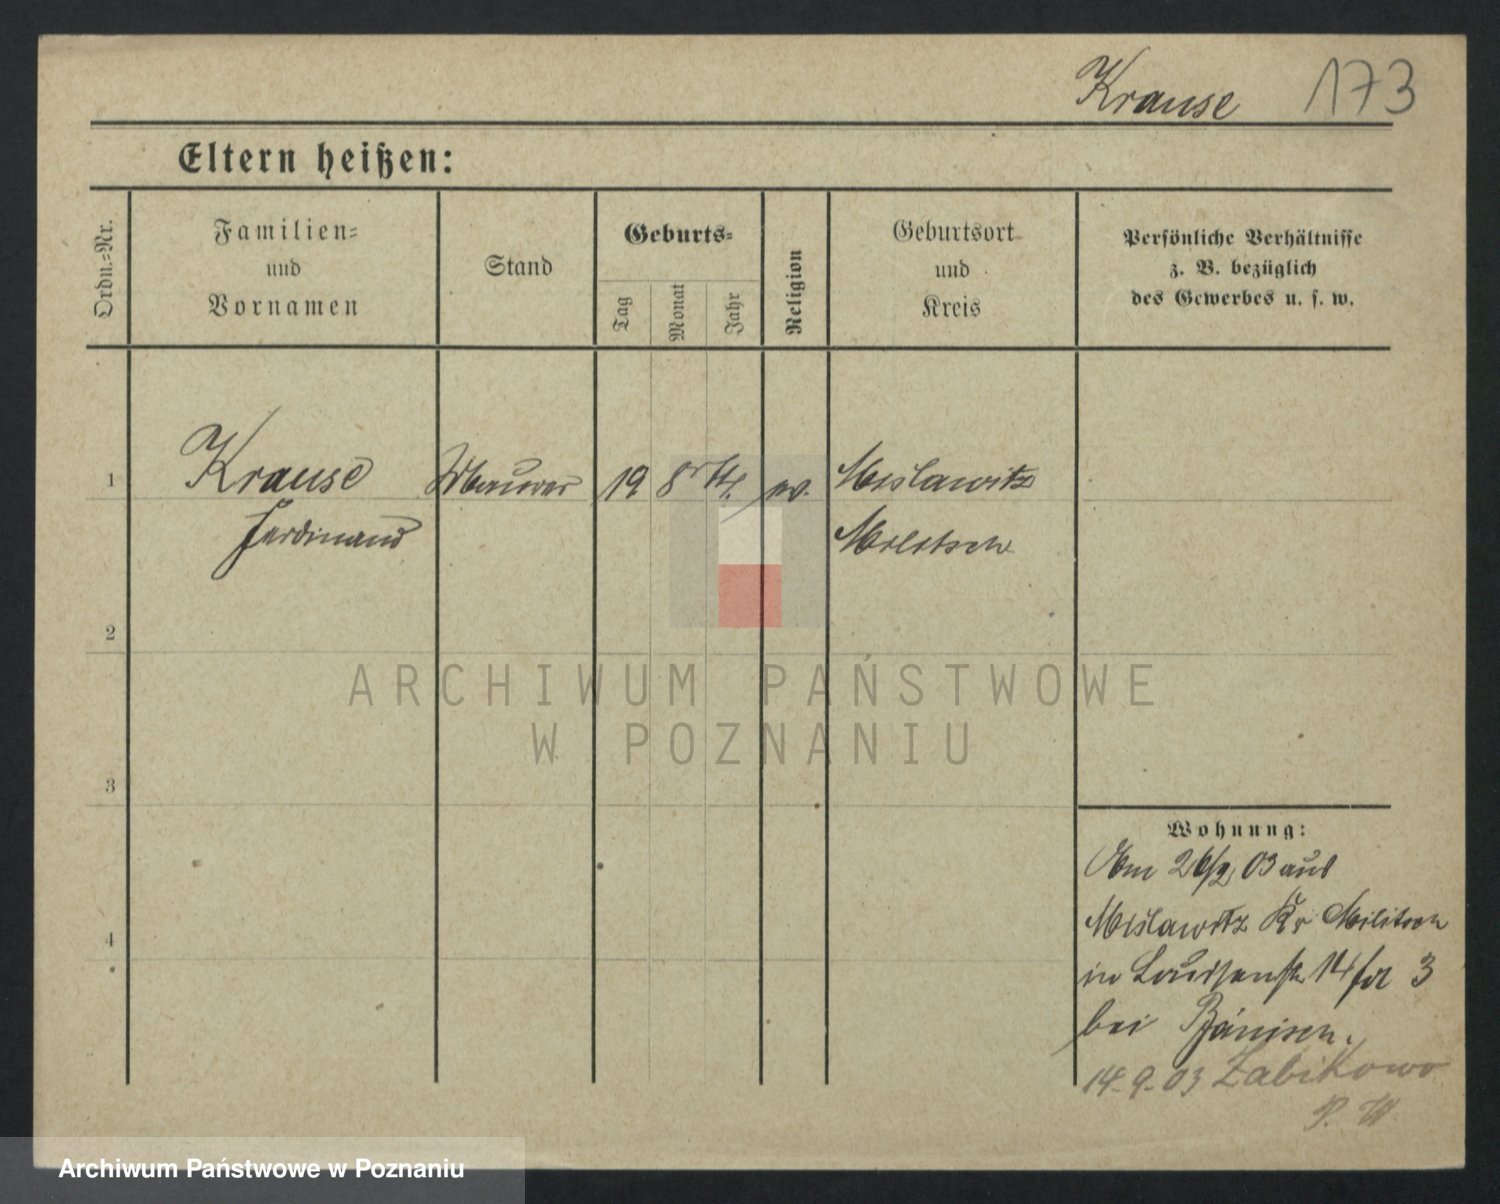 Krause 173
Eltern heißen:
Ordn.-Nr.
Familien-
und
Vornamen
Stand
Geburts-
Tag
Monat
Jahr
Religion
Geburtsort
und
Kreis
Persönliche Verhältnisse
z. B. bezüglich
des Gewerbes u. s. w.
1 Krause Maurer 19 8 ev. Mislawitz
Ferdinand Militsch
2
3
4
Wohnung:
Am 26/2 03 aus
Mislawitz Kr Militsch
in Louisenstr 14 3
bei
14.9.03 Zabikowo
P. W.
ARCHIWUM PAŃSTWOWE
W POZNANIU
Archiwum Państwowe w Poznaniu